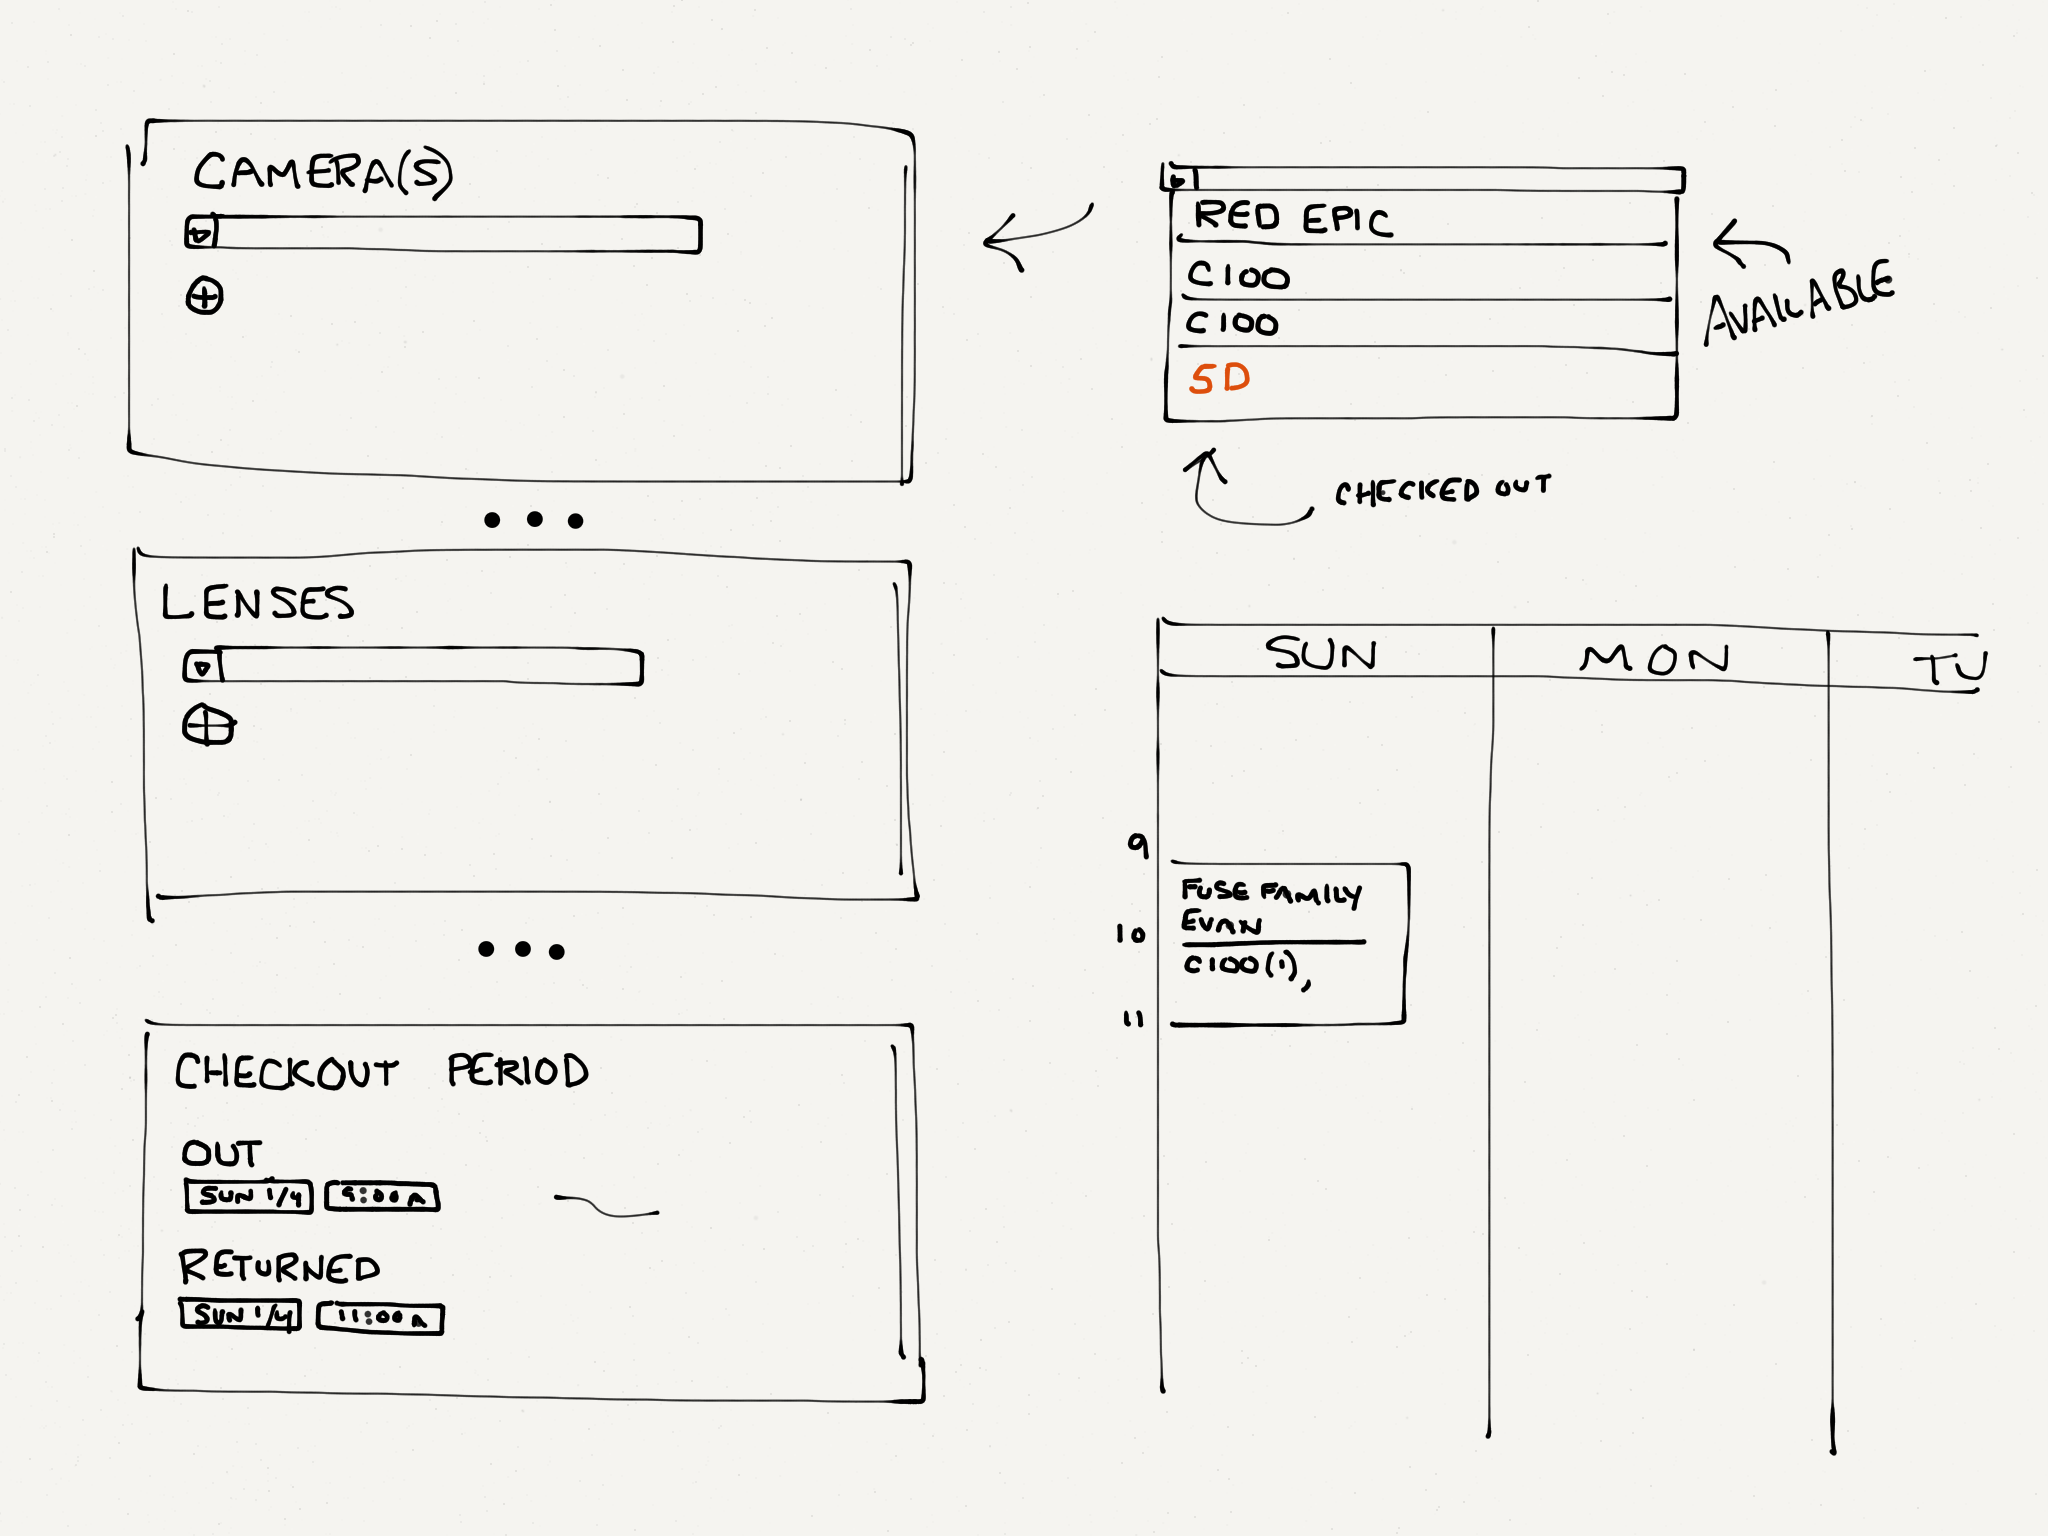 CAMERA(S)
LENSES
CHECKOUT PERIOD
OUT
SUN 1/4 9:00A
RETURNED
SUN 1/4 11:00A
RED EPIC
C100
C100
5D
AVAILABLE
CHECKED OUT
SUN MON TU
9
FUSE FAMILY
EVAN
10
C100(1),
11